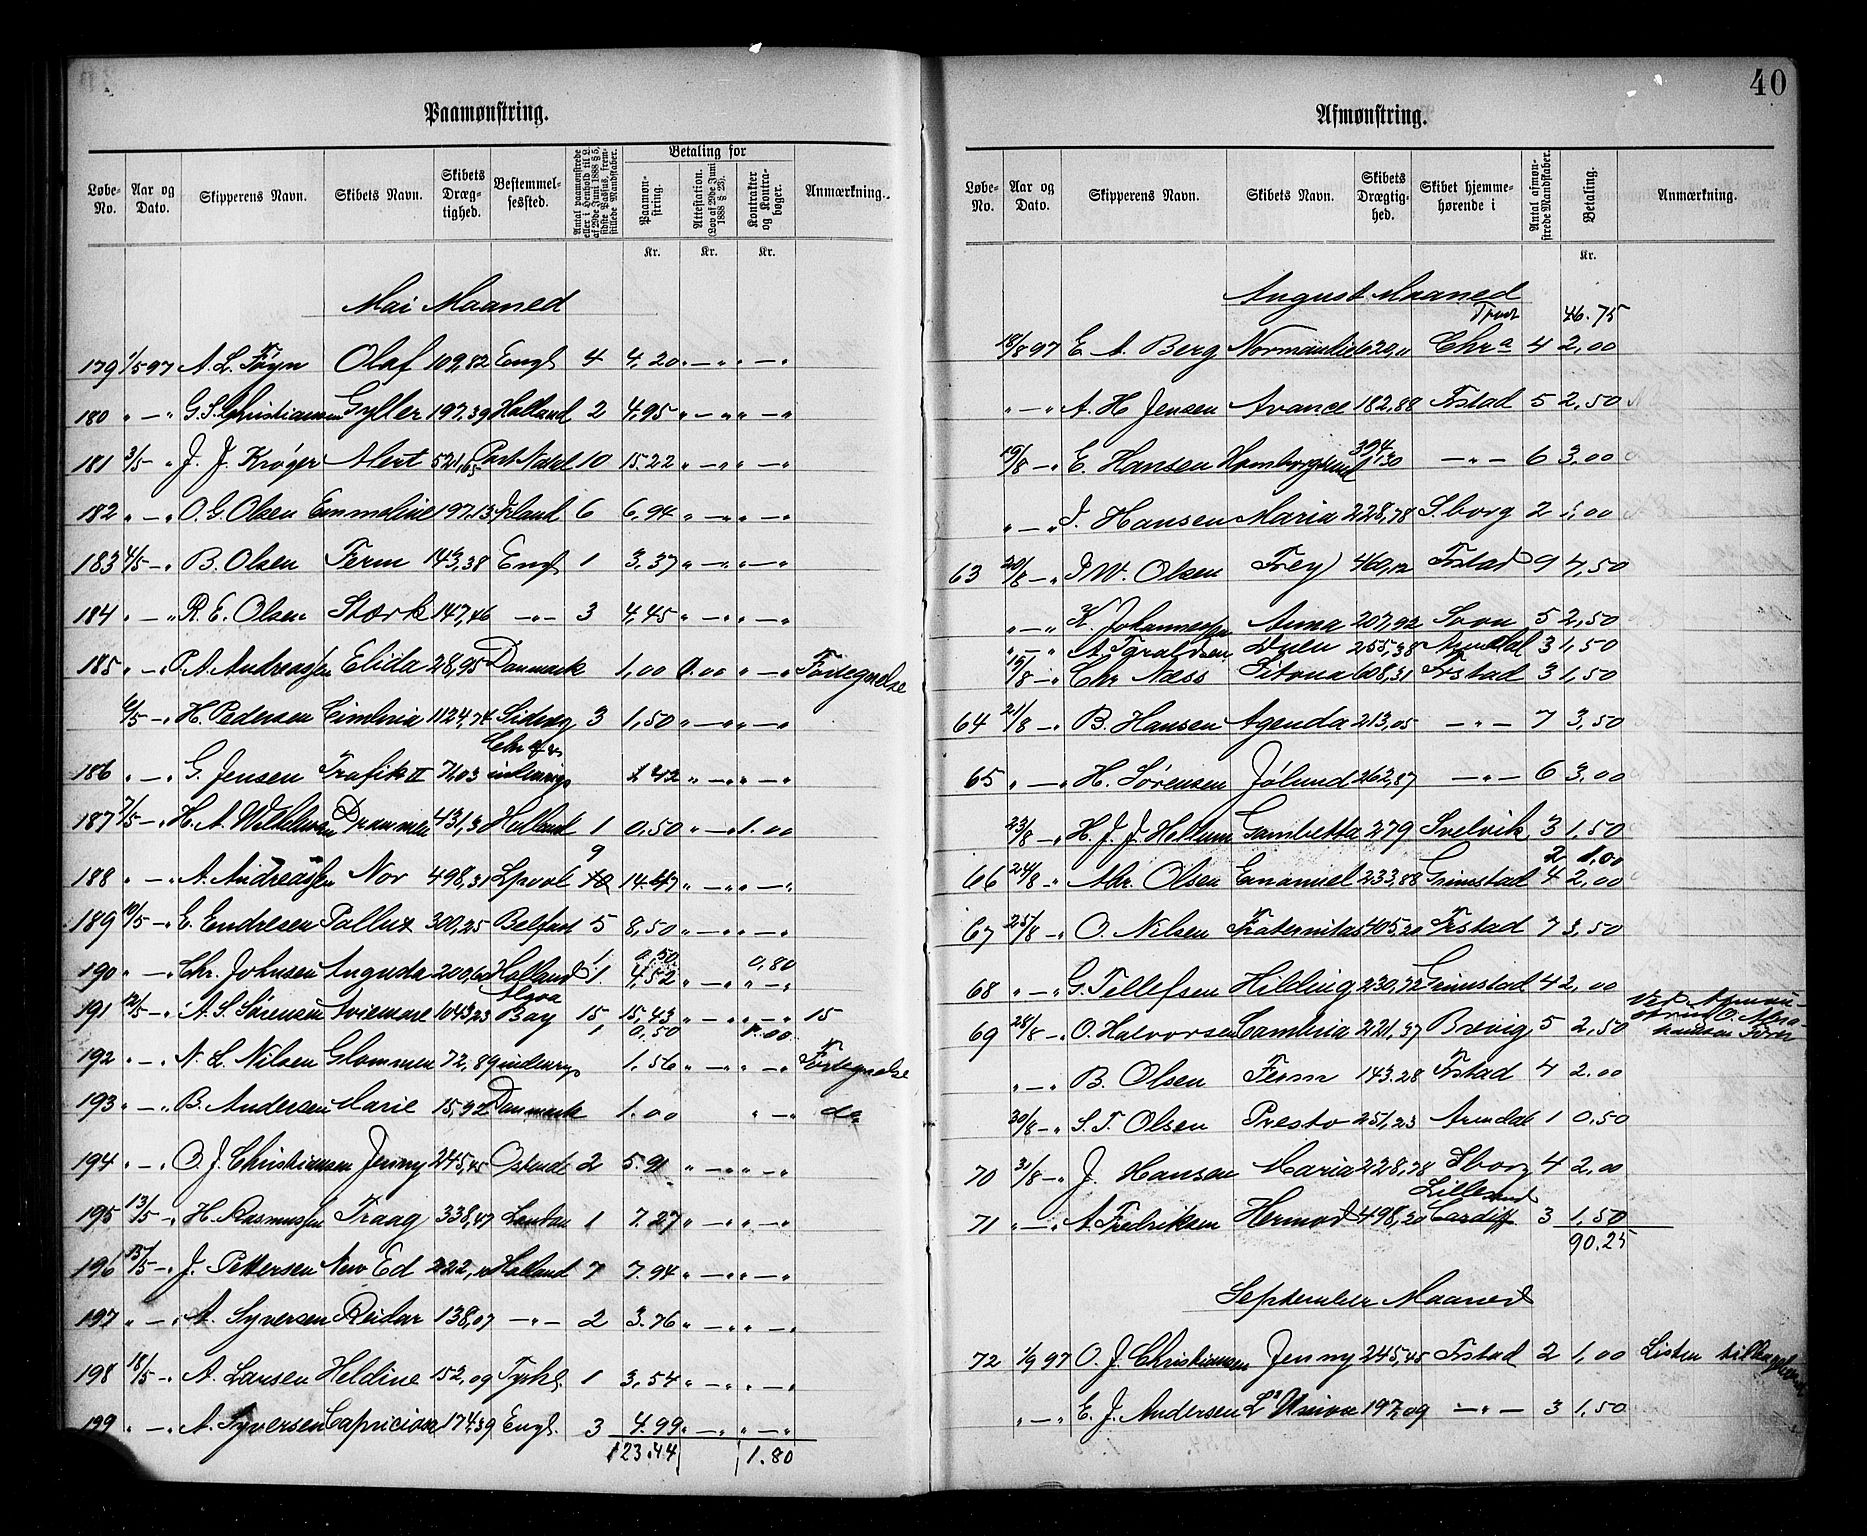 40
Paamønstring.
Løbe-No. Aar og Dato. Skipperens Navn. Skibets Navn. Skibets Drægtighed. Bestemmelsessted. Betaling for Paamønstring. Attestation. (Lov af 29de Juni 1888 § 23). Kontrakter og Kontrabøger. Anmærkning.
Kr. Kr. Kr.
Mai Maaned
179 1/5 97 A. L. Føyn Olaf 109,82 Engl 4 4,20 „ — „ „ — „
180 „ — „ G. S. Christiansen Gyller 197.39 Holland 2 4,95 „ — „ „ — „
181 3/5 — „ J. J. Krøger Alert 521,65 Port Natal 10 15.22 „ — „ „ — „
182 „ — „ O. G. Olsen Emmeline 197.13 Irland 6 6,94 „ — „ „ — „
183 4/5 — „ B. Olsen Ferm 143,38 Engl 1 3.37 „ — „ „ — „
184 „ — „ R. E. Olsen Stærk 147,46 — „ — 3 4,45 „ — „ „ — „
185 „ — „ P. A. Andreassen Elida 28,95 Danmark 1,00 0.00 „ — „ Fortegnelse
6/5 — „ H. Pedersen Cimbria 1124,74 3 1,50 „ — „ „ — „
186 „ — „ G. Jensen Trafik II 71,03 indenrigs 1.42 „ — „ „ — „
187 7/5 — „ H. A. Wilhelmsen Drammen 431,31 Holland 1 0.50 „ — „ 1.00
9
188 „ — „ A. Andreassen Nor 498,31 Lpool 10 14.47 „ — „ „ — „
189 10/5 — „ E. Endresen Pollux 300,25 Belfast 5 8,50 „ — „ „ — „
1 0,50 0,80
190 „ — „ Chr. Johnsen Augusta 200,60 Holland 1 4,52 „ — „ „ — „
Algoa
191 12/5 — „ A. S. Sørensen 1043,23 Bay 15 15,43 „ — „ „ — „ 15
1 0,50 1.00
192 „ — „ N. L. Nilsen Glommen 72,89 indenrgs 1.56 „ — „ „ — „ Fortegnelse
193 „ — „ B. Andersen Marie 15,92 Danmark 1.00 „ — „ do
194 „ — „ O. J. Christiansen Jenny 245,45 Ostende 2 5.91 „ — „ „ — „
195 13/5 — „ H. Rasmussen Traag 338,47 London 1 7.27 „ — „ „ — „
196 15/5 — „ J. Pettersen New Ed 222, Holland 7 7.94 „ — „ „ — „
197 „ — „ A. Syversen Reidar 138,07 — „ — 2 3.76 „ — „ „ — „
198 18/5 — „ A. Larsen Heldine 152,09 Tyskl. 1 3,54 „ — „ „ — „
199 „ — „ A. Syversen Capriciosa 174,39 Engl. 3 4.99 „ — „ „ — „
123.44 1.80
Afmønstring.
Løbe-No. Aar og Dato. Skipperens Navn. Skibets Navn. Skibets Drægtighed. Skibet hjemmehørende i Antal afmønstrede Mandskaber. Betaling. Anmærkning.
Kr.
August Maaned
Trsst 46.75
18/8 97 E. A. Berg Normandie 620,11 Chra 4 2,00
„ — „ A. H. Jensen Avance 182,88 Frstad 5 2,50
19/8 — „ E. Hansen Homborgsund 394,130 — „ — 6 3,00
„ — „ J. Hansen Maria 228,78 S.borg 2 1,00
63 20/8 — „ J. W. Olsen Frey 460,12 Frstad 9 4,50
„ — „ K. Johannessen Anna 207,92 Soon 5 2,50
„ — „ A. Taraldsen 255,38 Arendal 3 1,50
19/8 — „ Chr Næss Sitona 608,31 Frstad 3 1,50
64 21/8 — „ B. Hansen Agenda 213,05 — „ — 7 3,50
65 „ — „ H. Sørensen Jølund 262,87 — „ — 6 3,00
23/8 — „ H. J. J. Hellum Gambetta 279 Svelvik 3 1,50
2 1.00
66 24/8 — „ Abr. Olsen Emanuel 233,88 Grimstad 4 2,00
67 25/8 — „ O. Nilsen Fraternitas 405,20 Frstad 7 3,50
68 „ — „ G. Tellefsen Hilding 230,72 Grimstad 4 2,00
69 28/8 — „ O. Halvorsen Cambria 221,37 Brevig 5 2,50 Ved Afmønstring O. Abrahamsen Fører
„ — „ B. Olsen Ferm 143.28 Frstad 4 2.00
30/8 — „ S. T. Olsen Presto 251,23 Arendal 1 0,50
70 31/8 — „ J. Hansen Maria 228,78 S.borg 4 2,00
Lillesand
71 „ — „ A. Fredriksen Hermod 498,20 Cardiff 3 1,50
90.25
September Maaned
72 1/9 97 O. J. Christiansen Jenny 245,45 Frstad 2 1,00 Listen
„ — „ E. J. Andersen L'Union 197,09 — „ — 3 1,50